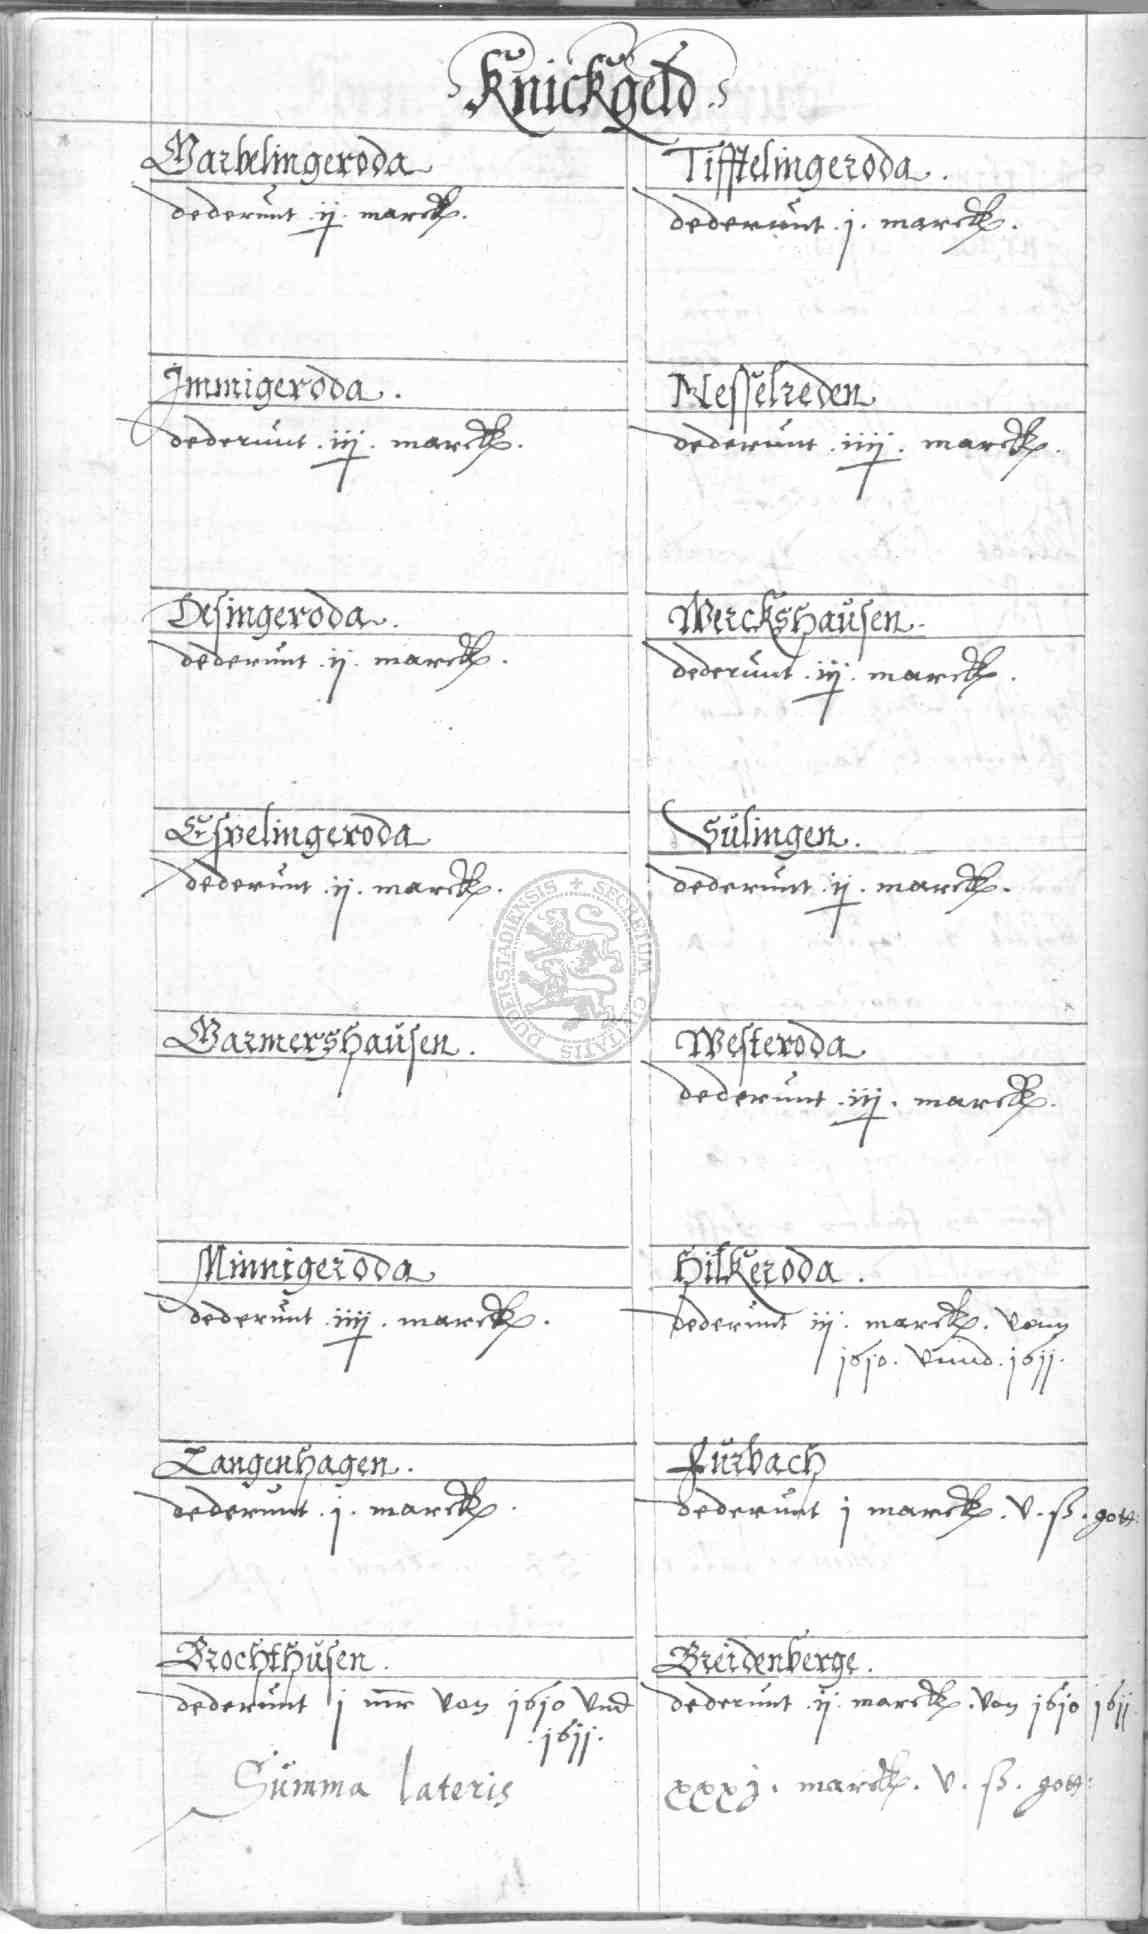 Knickgeld
Warbelingeroda
dederunt .ij. marck.
Immigeroda.
dederunt .iij. marck.
Desingeroda.
dederunt .ij. marck.
Espelingeroda
dederunt .ij. marck.
Warmershausen.
Minnigeroda
dederunt .iiij. marck.
Langenhagen.
dederunt .j. marck.
Brochthusen.
dederunt j mr von 1610 vnd
.1611.
Tifftelingeroda.
dederunt .j. marck.
Nesselreden
dederunt .iiij. marck.
Werckshausen.
dederunt .iij. marck.
Sulingen.
dederunt .ij. marck.
Westeroda
dederunt .iij. marck.
Hilkeroda.
dederunt iij. marck. vonn
1610. vnnd. 1611.
Furbach
dederunt j marck. v. ß. gott:
Breidenberge.
dederunt .ij. marck. von 1610 1611
Summa lateris xxxj. marck. v. ß. gott:
SECRETUM CIVITATIS DUDERSTADIENSIS